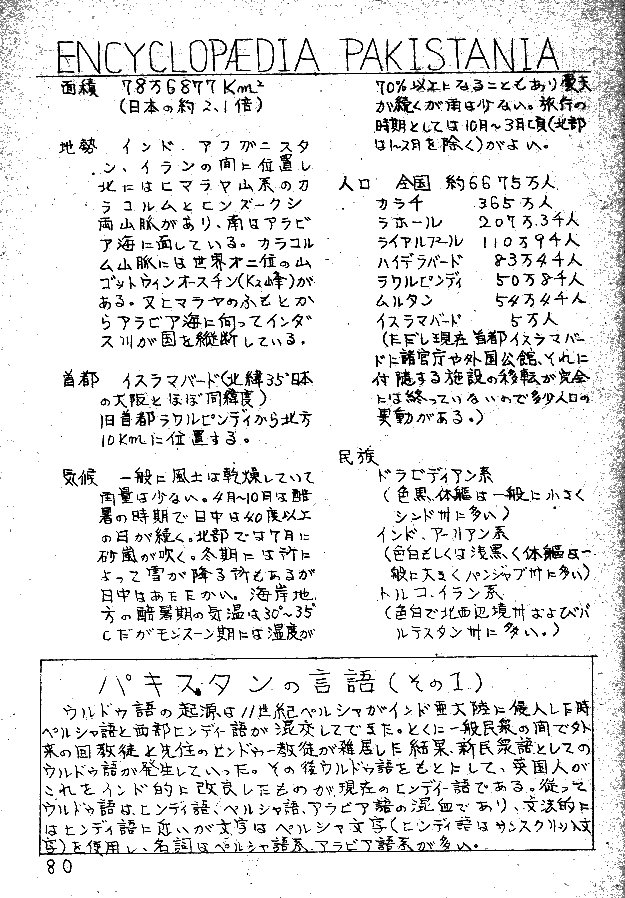 ENCYCLOPÆDIA PAKISTANIA
面積 78万6877Km²
(日本の約2.1倍)
地勢 インド、アフガニスタ
ン、イランの間に位置し
北にはヒマラヤ山系のカ
ラコルムとヒンズークシ
両山脈があり、南はアラビ
ア海に面している。カラコル
ム山脈には世界オ二位の山
ゴットウィンオースチン(K2峰)が
ある。又ヒマラヤのふもとか
らアラビア海に向ってインダ
ス川が国を縦断している。
首都 イスラマバード(北緯35°日本
の大阪とほぼ同緯度)
旧首都ラワルピンディから北方
10Kmに位置する。
気候 一般に風土は乾燥していて
雨量は少ない。4月~10月は酷
暑の時期で日中は40度以上
の日が続く。北部では7月に
砂嵐が吹く。冬期には所に
よって雪が降る所もあるが
日中はあたたかい。海岸地
方の酷暑期の気温は30°~35°
Cだがモンスーン期には湿度が
70%以上になることもあり曇天
が続くが雨は少ない。旅行の
時期としては10月~3月頃(北部
は1~2月を除く)がよい。
人口 全国 約6675万人
カラチ 365万人
ラホール 207万.34人
ライアルプール 110万94人
ハイデラバード 83万44人
ラワルピンディ 50万84人
ムルタン 54万44人
イスラマバード 5万人
(ただし現在首都イスラマバー
ドに諸官庁や外国公館、それに
付随する施設の移転が完全
には終っていないので多少人口の
異動がある。)
民族
ドラビディアン系
(色黒、体軀は一般に小さく
シンド州に多い)
インド、アーリアン系
(色白もしくは浅黒く体軀は一
般に大きくパンジャブ州に多い)
トルコ、イラン系
(色白で北西辺境州およびバ
ルテスタン州に多い。)
パキスタンの言語(その1)
ウルドゥ語の起源は11世紀ペルシャがインド亜大陸に侵入した時
ペルシャ語と西部ヒンディ語が混交してできた。とくに一般民衆の間で外
来の回教徒と先住のヒンドゥー教徒が雑居した結果、新民衆語としての
ウルドゥ語が発生していった。その後ウルドゥ語をもとにして、英国人が
これをインド的に改良したものが現在のヒンディー語である。従って
ウルドゥ語は、ヒンディ語、ペルシャ語、アラビア語の混血であり、文法的に
はヒンディ語に近いが文字はペルシャ文字(ヒンディ語はサンスクリット文
字)を使用し、名詞はペルシャ語系、アラビア語系が多い。
80